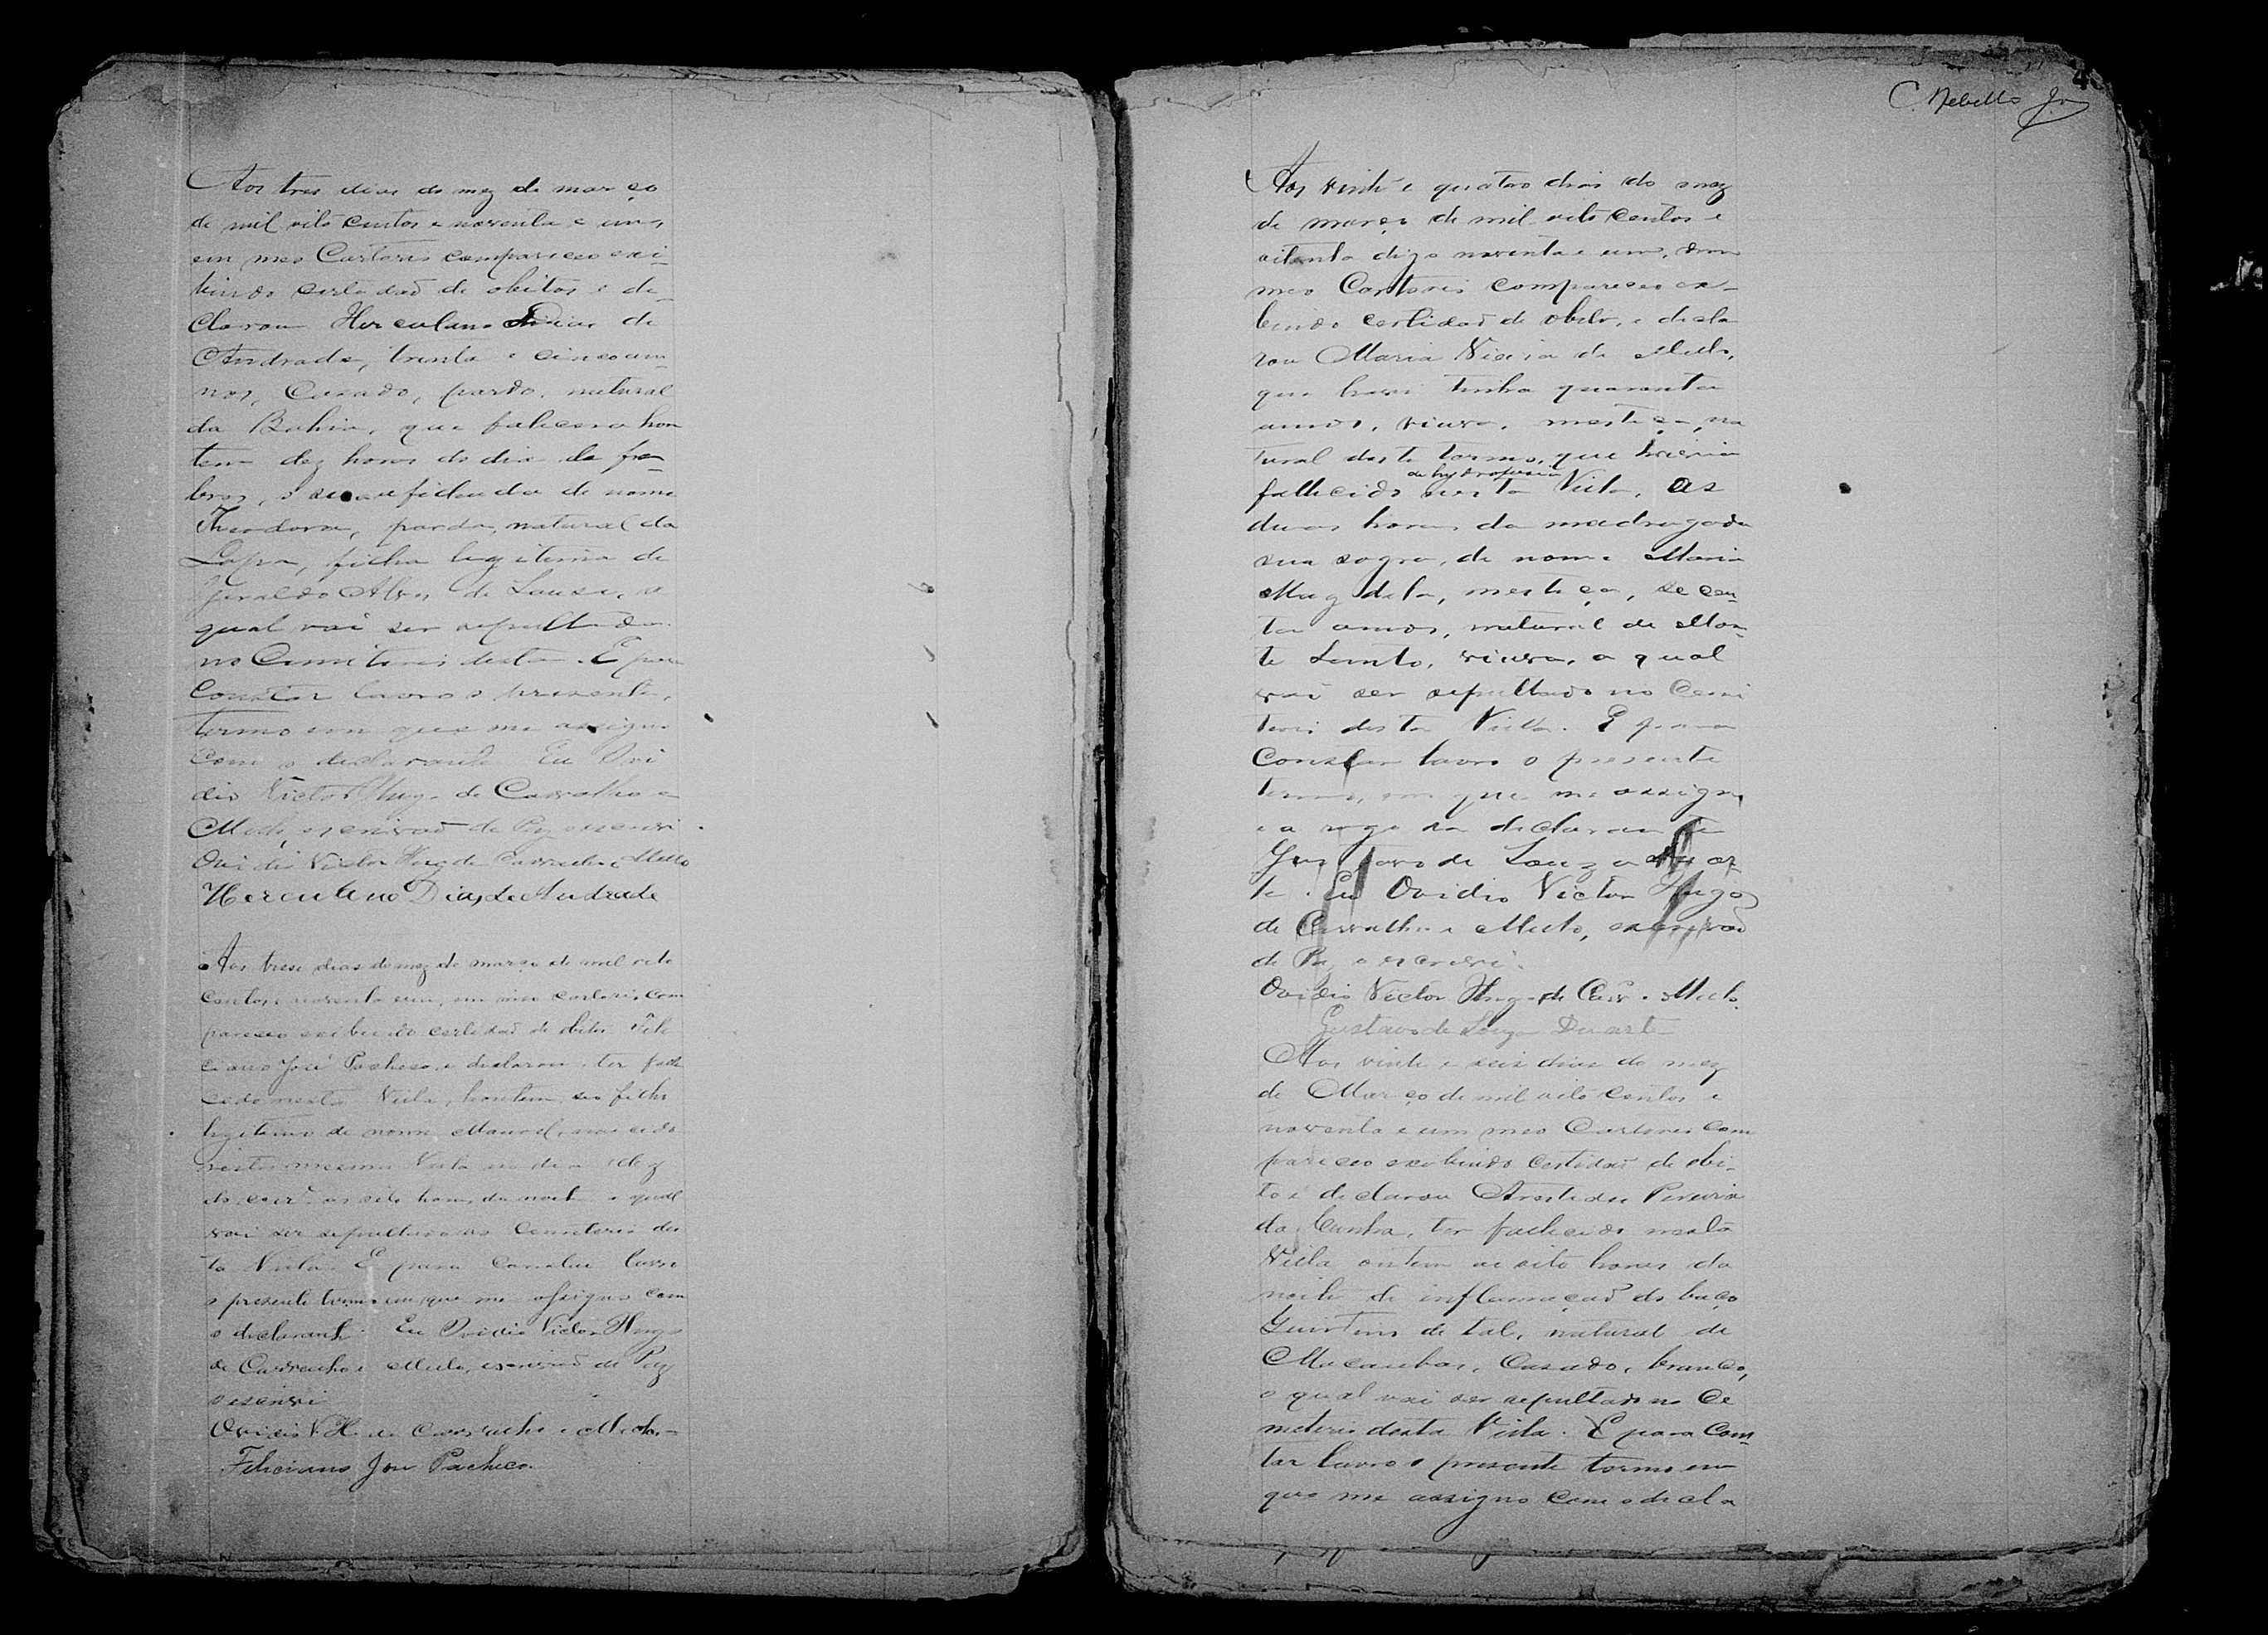 Aos tres dias do mez de março
de mil oito centos e noventa e um,
em meo Cartorio compareceo exi-
bindo certidaõ de obitos e de-
clarou Herculano Dias de
Andrade, trinta e cinco an-
nos, Casado, pardo, natural
da Bahia, que fallecera hon
tem dez horas do dia de fe-
bres, sua afilhada de nome
Theodora, parda, natural da
Lapa, filha legitima de
Geraldo Alves de Souza, a
qual vai ser sepultada
no Cemiterio desta. E para
Constar lavro o presente,
termo em que me assigno
com o declarante. Eu Ovi
dio Victor Hugo de Carvalho e
Mello, escrivaõ de Paz o escrevi.
Ovidio Victor Hugo de Carvalho e Mello
Herculano Dias de Andrade
Aos treze dias do mez de março de mil oito
centos e noventa e um, em meo cartorio, com
pareceo exibindo certidaõ de obito Feli
ciano José Pacheco e declarou ter falle
cido nesta Villa, hontem, seo filho
legitimo de nome Manoel, nascido
nesta mesma Villa no dia dez
do corr.e as oito horas da noite o qual
vai ser sepultado no Cemiterio des
ta Villa. E para Constar lavro
o presente termo em que me assigno com
o declarante. Eu Ovidio Victor Hugo
de Carvalho e Mello, escrivaõ de Paz
o escrevi
Ovidio V. H. de Carvalho e Mello
Feliciano Jose Pacheco.
C. Rebello Jr
Aos vinte e quatro dias do mez
de março de mil oito centos e
oitenta digo noventa e um, em
meo Cartorio compareceo ex-
bindo certidaõ de obito, e decla
rou Maria Vieira de Mello,
que tinha quarenta
annos, viuva, mestiça, na
tural deste termo, que havia
de hydropesia
fallecido nesta Villa, as
duas horas da madrugada
sua sogra, de nome Maria
Magdala, mestiça, secen-
ta annos, natural de Mon-
te Santo, viuva, a qual
vai ser sepultado no Cemi
terio desta Villa. E para
Constar lavro o presente
termo, em que me assigno
e a rogo da declarante
Gustavo de Souza Duar-
te. Eu Ovidio Victor Hugo
de Carvalho e Mello, escrivaõ
de Paz o escrevi.
Ovidio Victor Hugo de Carv. e Mello.
Gustavo de Souza Duarte
Aos vinte e seis dias do mez
de Março de mil oito centos e
noventa e um meo Cartorio com
pareceo exibindo certidaõ de obi-
to e declarou Aristides Pereira
da Cunha, ter fallecido nesta
Villa ontem as oito horas da
noite de inflamaçaõ do baço
Quintino de tal, natural de
Macaubas, Casado, branco,
o qual vai ser sepultado no Ce
miterio desta Villa. E para Cons-
tar lavro o presente termo em
que me assigno com o decla